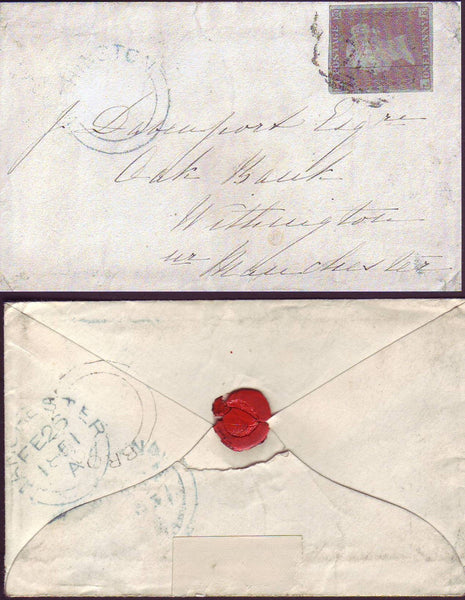 HINGTON
ONE PENNY
Davenport Esqre
Oak Bank
Withington
nr Manchester
MANCHESTER
FE 25
1851
A